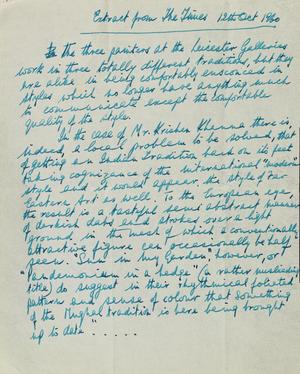 Extract from The Times 12th Oct 1960
The three painters at the Leicester Galleries
work in three totally different traditions, but they
are alike in being comfortably ensconced in
styles which no longer have anything much
to communicate except the comfortable
quality of the style.
In the case of Mr. Krishen Khanna there is,
indeed, a local problem to be solved, that
of getting an Indian Tradition back on its feet
taking cognizance of the international "modern"
style and it would appear, the style of Far
Eastern Art as well. To the European eye,
the result is a tasteful semi abstract manner
of darkish dabs and strokes over a light
ground, in the mesh of which a conventionally
attractive figure can occasionally be half
seen. "Sun in my Garden", however, or
"Pandemonium in a hedge" (a rather misleading
title) do suggest in their rhythmical faceted
pattern and sense of colour that something
of the Mughal tradition is here being brought
up to date .....